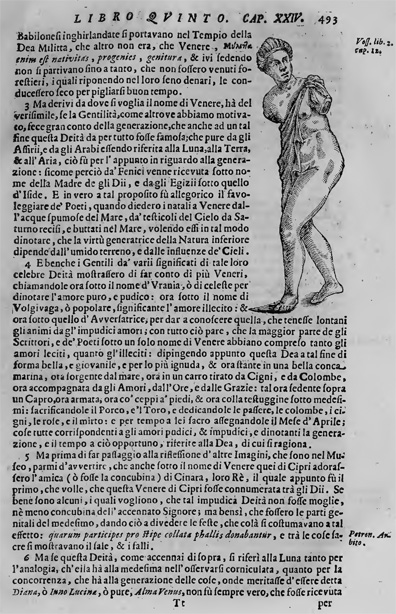 LIBRO QVINTO. CAP. XXIV. 493
Babilonesi inghirlandate si portavano nel Tempio della
Dea Militta, che altro non era, che Venere,
enim est nativitas, progenies, genitura, & ivi sedendo
non si partivano sino a tanto, che non fossero venuti fo-
restieri, i quali riponendo nel loro seno denari, le con-
ducessero seco per pigliarsi buon tempo.
3 Ma derivi da dove si voglia il nome di Venere, hà del
verisimile, se la Gentilità, come altrove abbiamo motiva-
to, fece gran conto della generazione, che anche ad un tal
fine questa Deità da per tutto fosse famosa; che pure dagli
Assirii, e da gli Arabi essendo riferita alla Luna; alla Terra,
& all'Aria, ciò fù per l'appunto in riguardo alla genera-
zione: sicome perciò da' Fenici venne ricevuta sotto no-
me della Madre de gli Dii, e dagli Egizii sotto quello
d'Iside. E in vero a tal proposito fù allegorico il favo-
leggiare de' Poeti, quando diedero i natali a Venere dal-
l'acque spumose del Mare, da' testicoli del Cielo da Sa-
turno recisi, e buttati nel Mare, volendo essi in tal modo
dinotare, che la virtù generatrice della Natura inferiore
dipende dall'umido terreno, e dalle influenze de' Cieli.
4 Ebenche i Gentili da' varii significati di tale loro
celebre Deità mostrassero di far conto di più Veneri,
chiamandole ora sotto il nome d'Vrania, ò di celeste per
dinotare l'amore puro, e pudico: ora sotto il nome di
Volgivaga, ò popolare, significante l'amore illecito: &
ora sotto quello d'Avversatrice, per dar a conoscere quella, che tenesse lontani
gli animi da gl'impudici amori; con tutto ciò pare, che la maggior parte de gli
Scrittori, e de' Poeti sotto un solo nome di Venere abbiano compreso tanto gli
amori leciti, quanto gl'illeciti: dipingendo appunto questa Dea a tal fine di
forma bella, e giovanile, e per lo più ignuda, & ora stante in una bella conca
marina, ora sorgente dal mare, ora in un carro tirato da Cigni, e da Colombe,
ora accompagnata da gli Amori, dall'Ore, e dalle Grazie: tal ora sedente sopra
un Capro, ora armata, ora co' ceppi a' piedi, & ora colla testuggine sotto medesi-
mi: sacrificandole il Porco, e'l Toro, e dedicandole le passere, le colombe, i ci-
gni, le rose, e il mirto: e per tempo a lei sacro assegnandole il Mese d'Aprile;
cose tutte corrispondenti a gli amori pudici, & impudici, e dinotanti la genera-
zione, e il tempo a ciò opportuno, riferite alla Dea, di cui si ragiona.
5 Ma prima di far passaggio alla riflessione d'altre Imagini, che sono nel Mu-
seo, parmi d'avvertire, che anche sotto il nome di Venere quei di Cipri adoras-
sero l'amica (ò fosse la concubina) di Cinara, loro Rè, il quale appunto fù il
primo, che volle, che questa Venere di Cipri fosse connumerata trà gli Dii. Se
bene sono alcuni, i quali vogliono, che tal impudica Deità non fosse moglie,
nè meno concubina dell'accennato Signore; ma bensì, che fossero le parti ge-
nitali del medesimo, dando ciò a divedere le feste, che colà si costumavano a tal
effetto: quarum participes pro stipe collata phallis donabantur, e trà le cose sa-
cre si mostravano il sale, & i falli.
6 Ma se questa Deità, come accennai di sopra, si riferì alla Luna tanto per
l'analogia, ch'ella hà alla medesima nell'osservarsi corniculata, quanto per la
concorrenza, che hà alla generazione delle cose, onde meritasse d'essere detta
Diana, ò Inno Lucina, ò pure, Alma Venus, non fù sempre vero, che fosse ricevuta
Tt per
Voss. lib. 2.
cap. 12.
Petron. Ar-
bito.